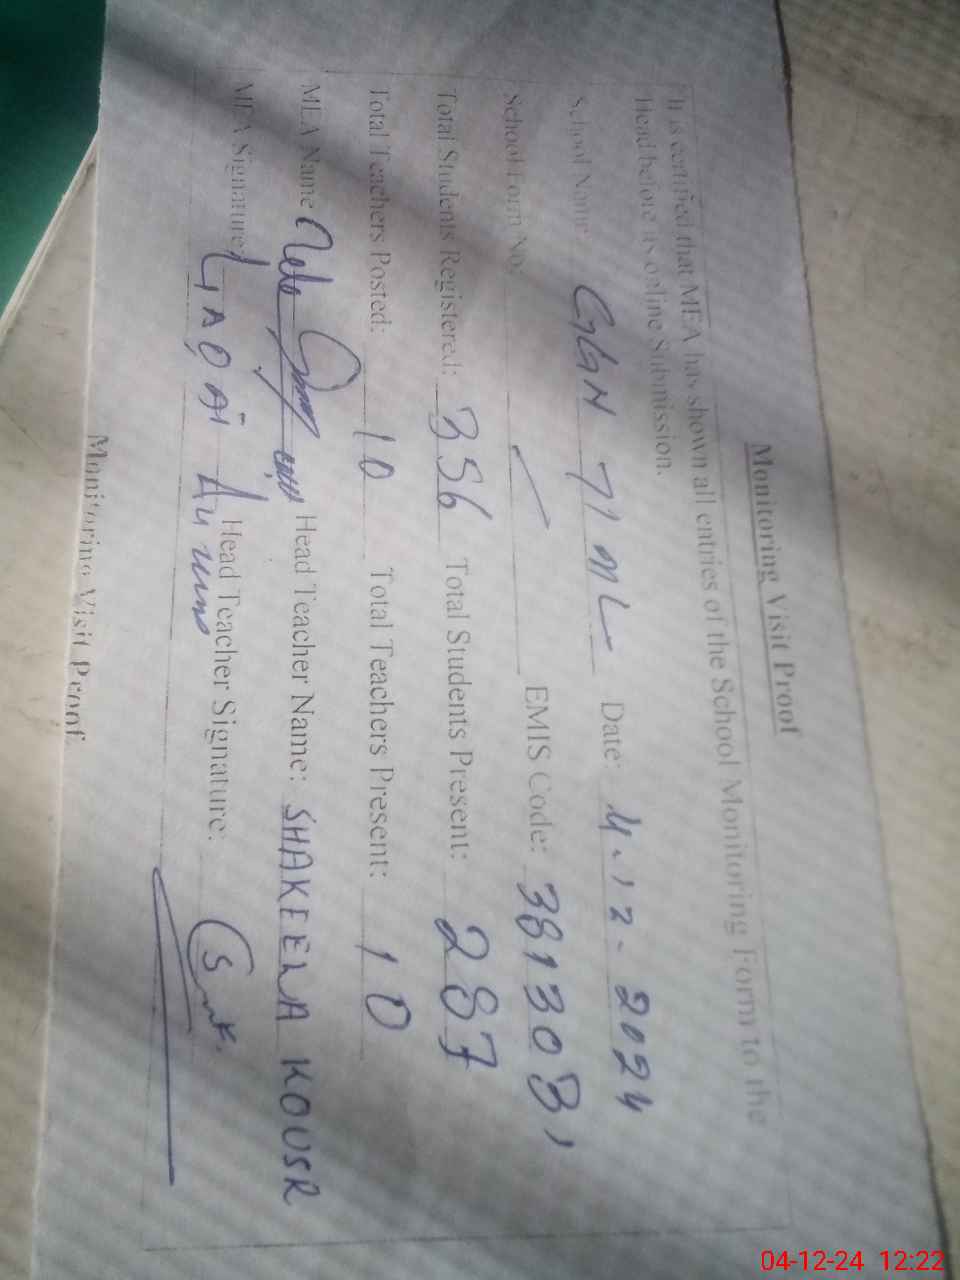 Monitoring Visit Proof
It is certified that MEA has shown all entries of the School Monitoring Form to the
Head before its online Submission.
School Name: GGH 71 ML Date: 4.12.2024
School Form No: EMIS Code: 3813081
Total Students Registered: 356 Total Students Present: 287
Total Teachers Posted: 10 Total Teachers Present: 10
MEA Name Head Teacher Name: SHAKEELA KOUSR
MEA Signature: Head Teacher Signature:
Monitoring Visit Proof
04-12-24 12:22